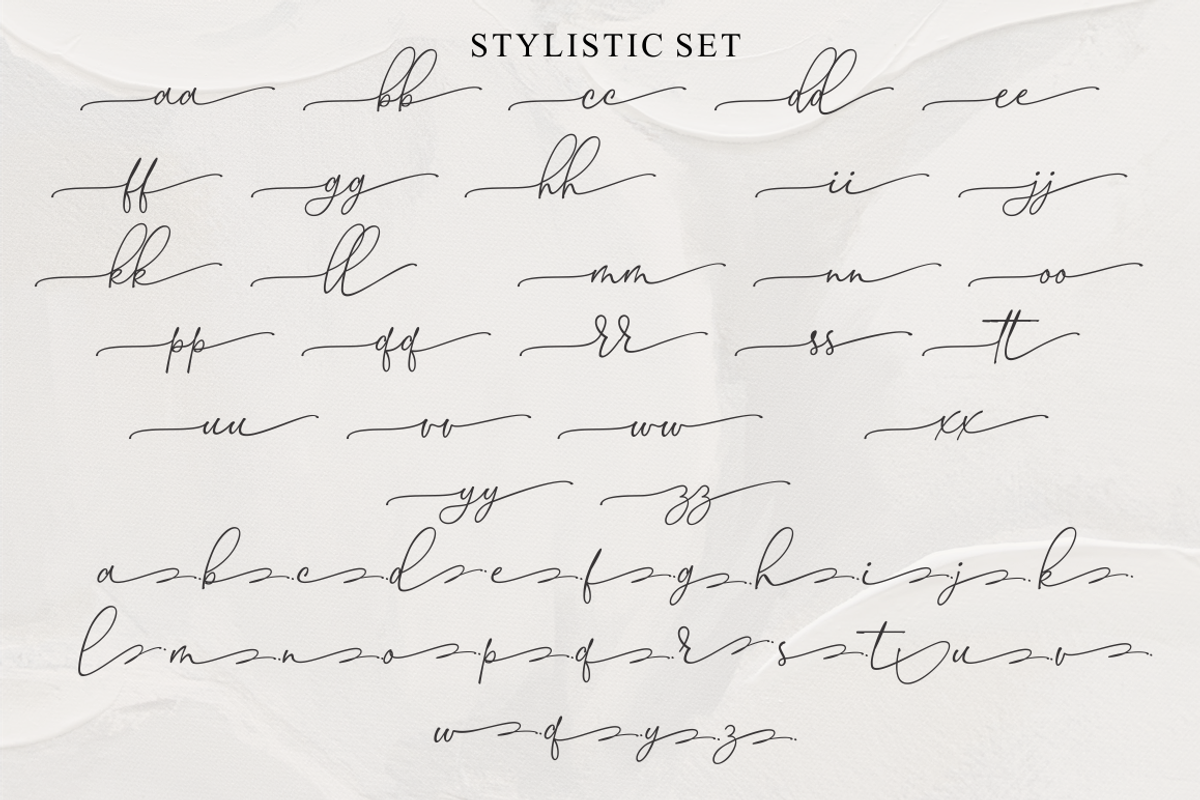 STYLISTIC SET
aa bb cc dd ee
ff gg hh ii jj
kk ll mm nn oo
pp qq rr ss tt
uu vv ww xx
yy zz
a b c d e f g h i j k
l m n o p q r s t u v
w q y z